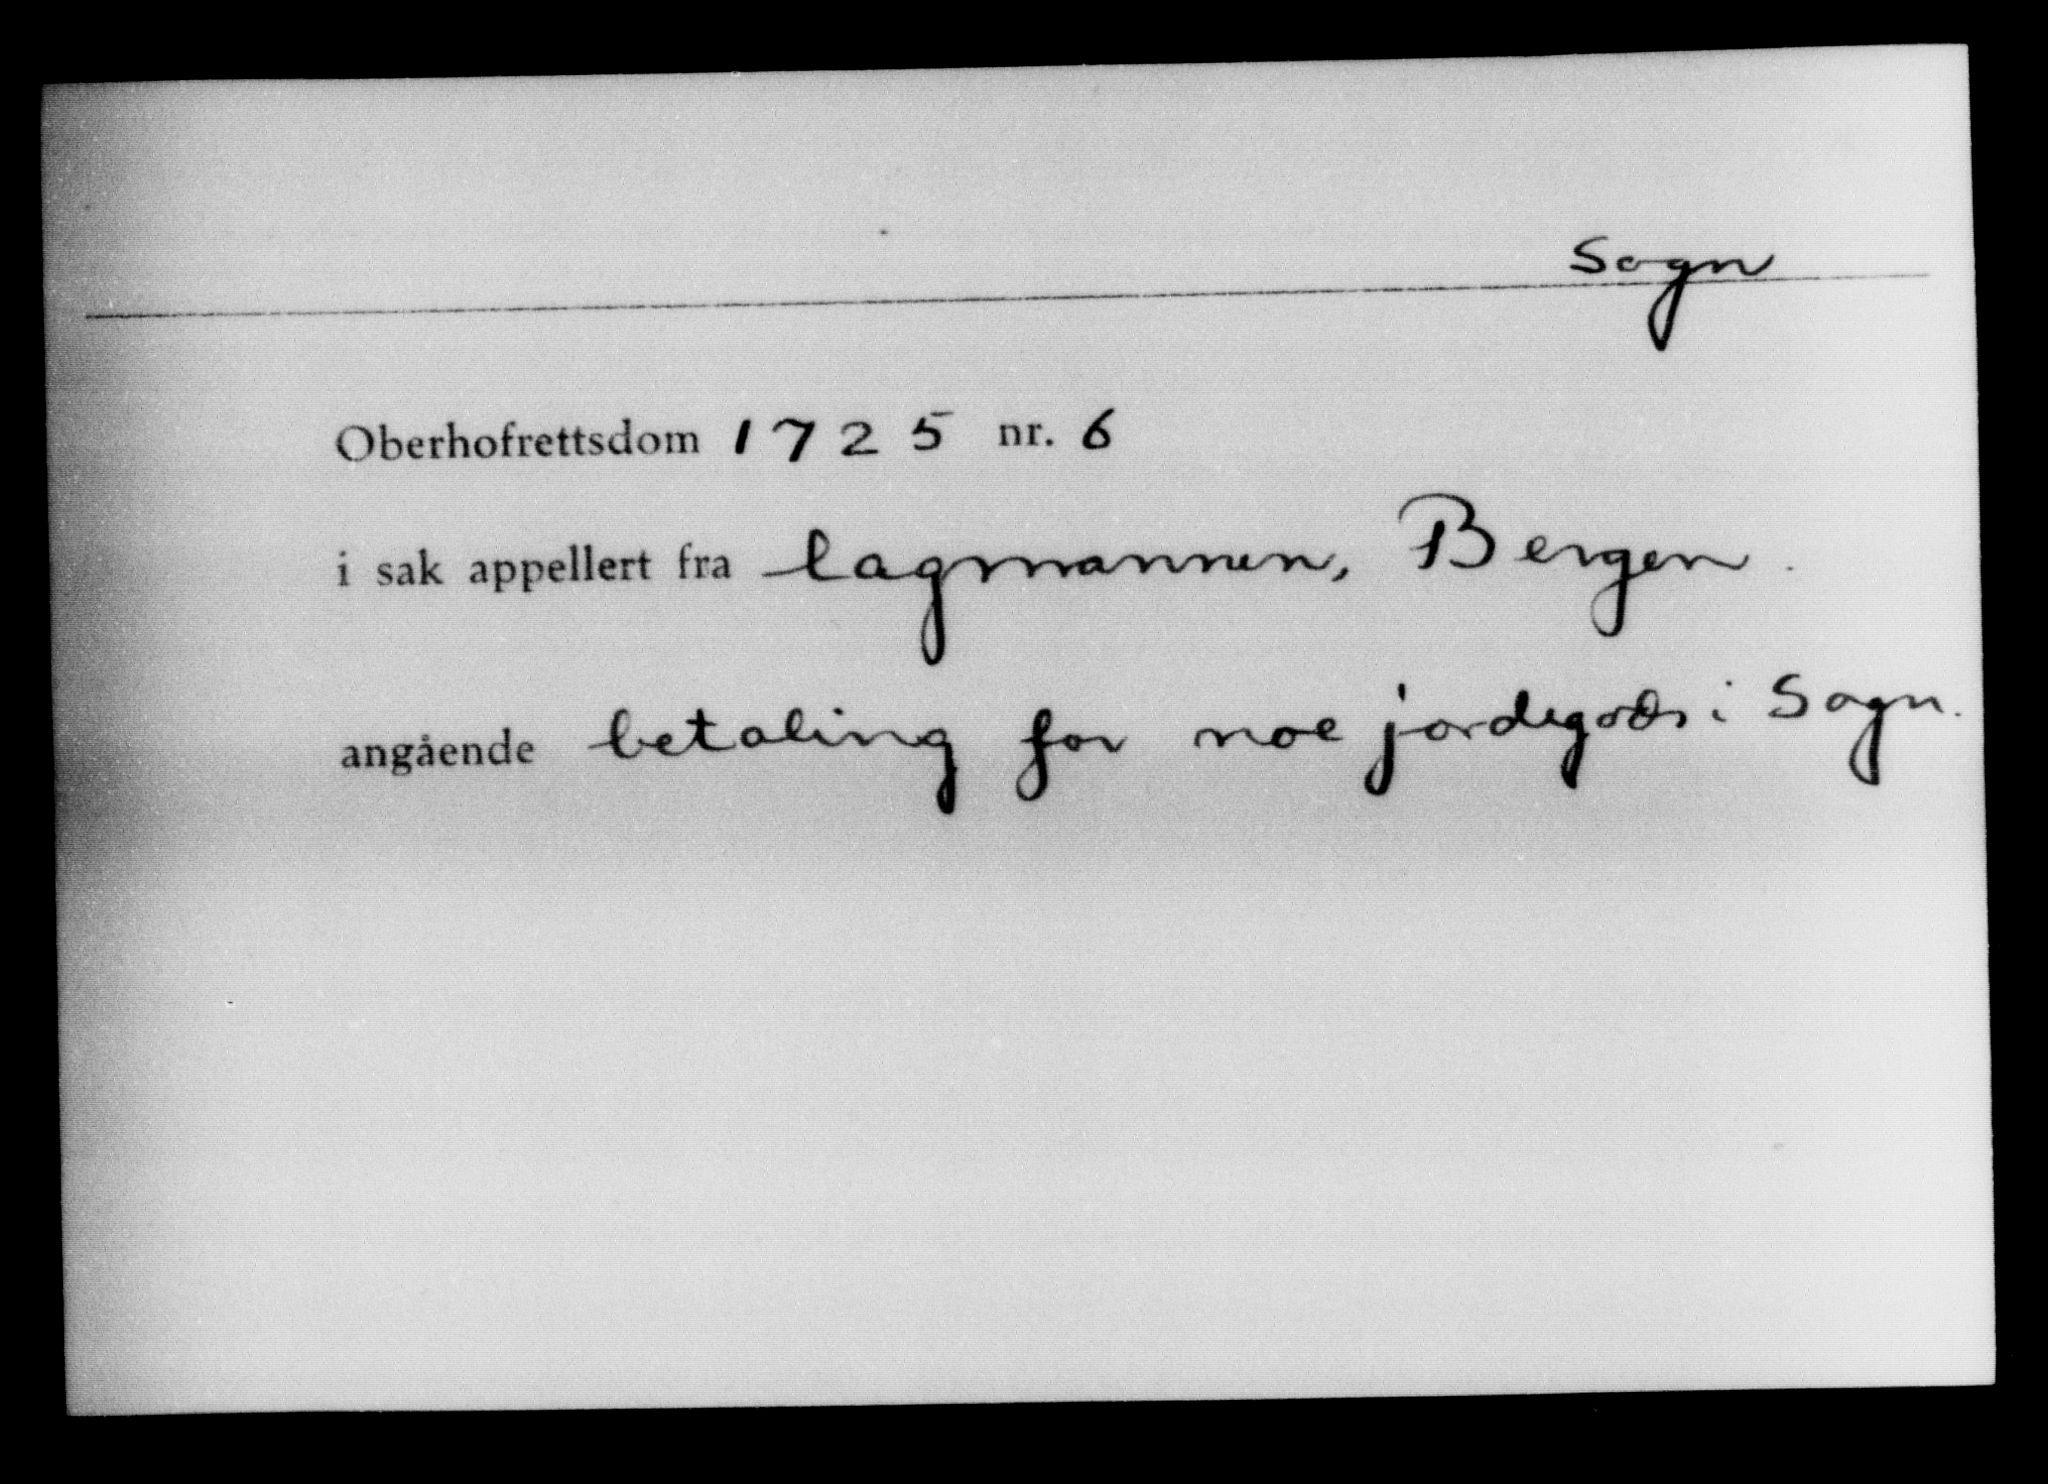 Sogn
Oberhofrettsdom 1725 nr. 6
i sak appellert fra lagmannen, Bergen.
angående betaling for noe jordegods i Sogn.